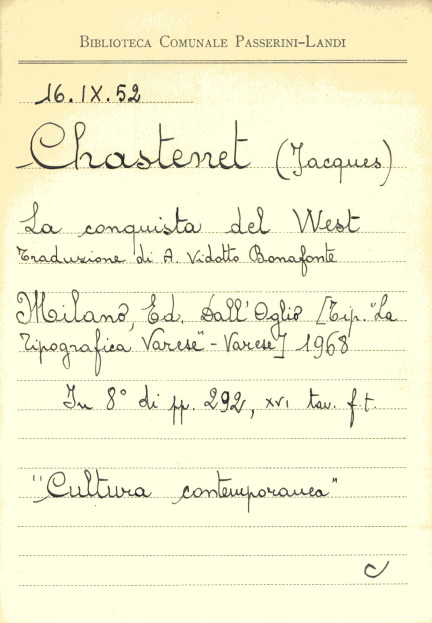 BIBLIOTECA COMUNALE PASSERINI-LANDI
16.IX.52
Chastenet (Jacques)
La conquista del West
Traduzione di A. Vidotto Bonafonte
Milano, Ed. Dall'Oglio [Tip. "La
Tipografica Varese" - Varese] 1968
In 8° di pp. 292, XVI tav. f.t.
"Cultura contemporanea"
C